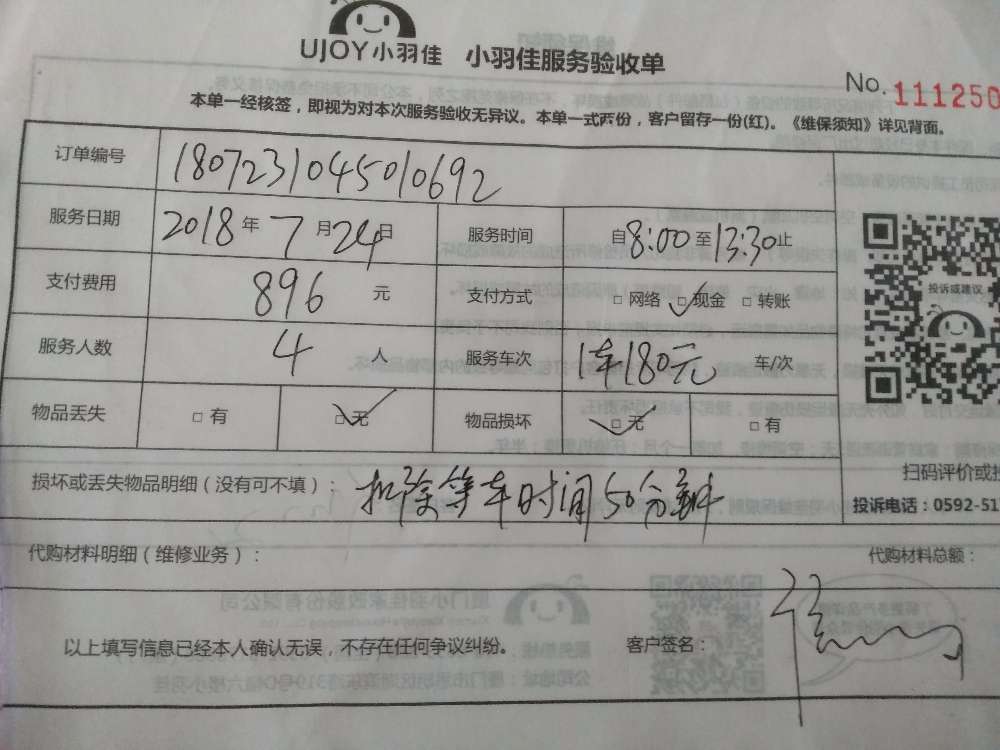 UJOY小羽佳 小羽佳服务验收单
No. 111250
本单一经核签，即视为对本次服务验收无异议。本单一式两份，客户留存一份(红)。《维保须知》详见背面。
订单编号 1807231045010692
服务日期 2018年7月24日 服务时间 自8:00至13:30止
支付费用 896 元 支付方式 □ 网络 □ 现金 □ 转账
投诉或建议
服务人数 4 人 服务车次 1车180元 车/次
物品丢失 □ 有 □ 无 物品损坏 □ 无 □ 有
扫码评价或投
损坏或丢失物品明细（没有可不填）： 扣除等车时间50分钟
投诉电话：0592-51
代购材料明细（维修业务）： 代购材料总额：
以上填写信息已经本人确认无误，不存在任何争议纠纷。 客户签名：